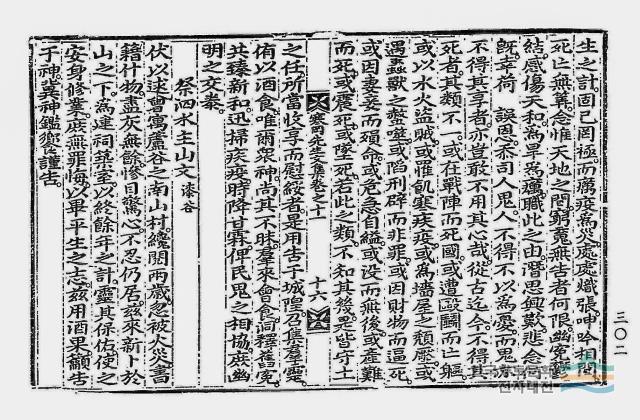 生之計固已罔極而癘疫爲災處處熾張呻吟相聞
死亡無筭念惟天地之間窮寃無告者何限幽寃
結感傷天和爲旱爲癘職此之由潛思興歎悲念
旣幸荷 誤恩忝司人鬼人不得不以爲憂而鬼
不得其享者亦豈敢不用其心哉從古迄今不得
死者其類不一或在戰陣而死國或遭毆鬪而亡軀
或以水火盜賊或罹飢寒疾疫或爲墻屋之頹壓或
遇蟲獸之螫噬或陷刑辟而非罪或因財物而逼死
或因妻妾而殞命或危急自縊或沒而無後或產難
而死或震死或墜死若此之類不知其幾是皆守土
寒岡先生文集卷之十一 十六
之任所當收享而慰綏者是用告于城隍召集羣靈
侑以酒食唯爾衆神尚其不昧羣來會食洞釋舊寃
共臻新和迅掃疾疫時降甘霖俾民鬼之相協庶幽
明之交泰
祭泗水主山文 漆谷
伏以逑曾寓蘆谷之南山村纔閱兩歲忽被火災書
籍什物盡灰無餘慘目驚心不忍仍居玆來新卜於
山之下爲建祠築室以終餘年之計靈其保佑使之
安身修業庶無罪悔以畢平生之志玆用酒果籲告
于神冀神鑑饗謹告
三〇二
전자대전